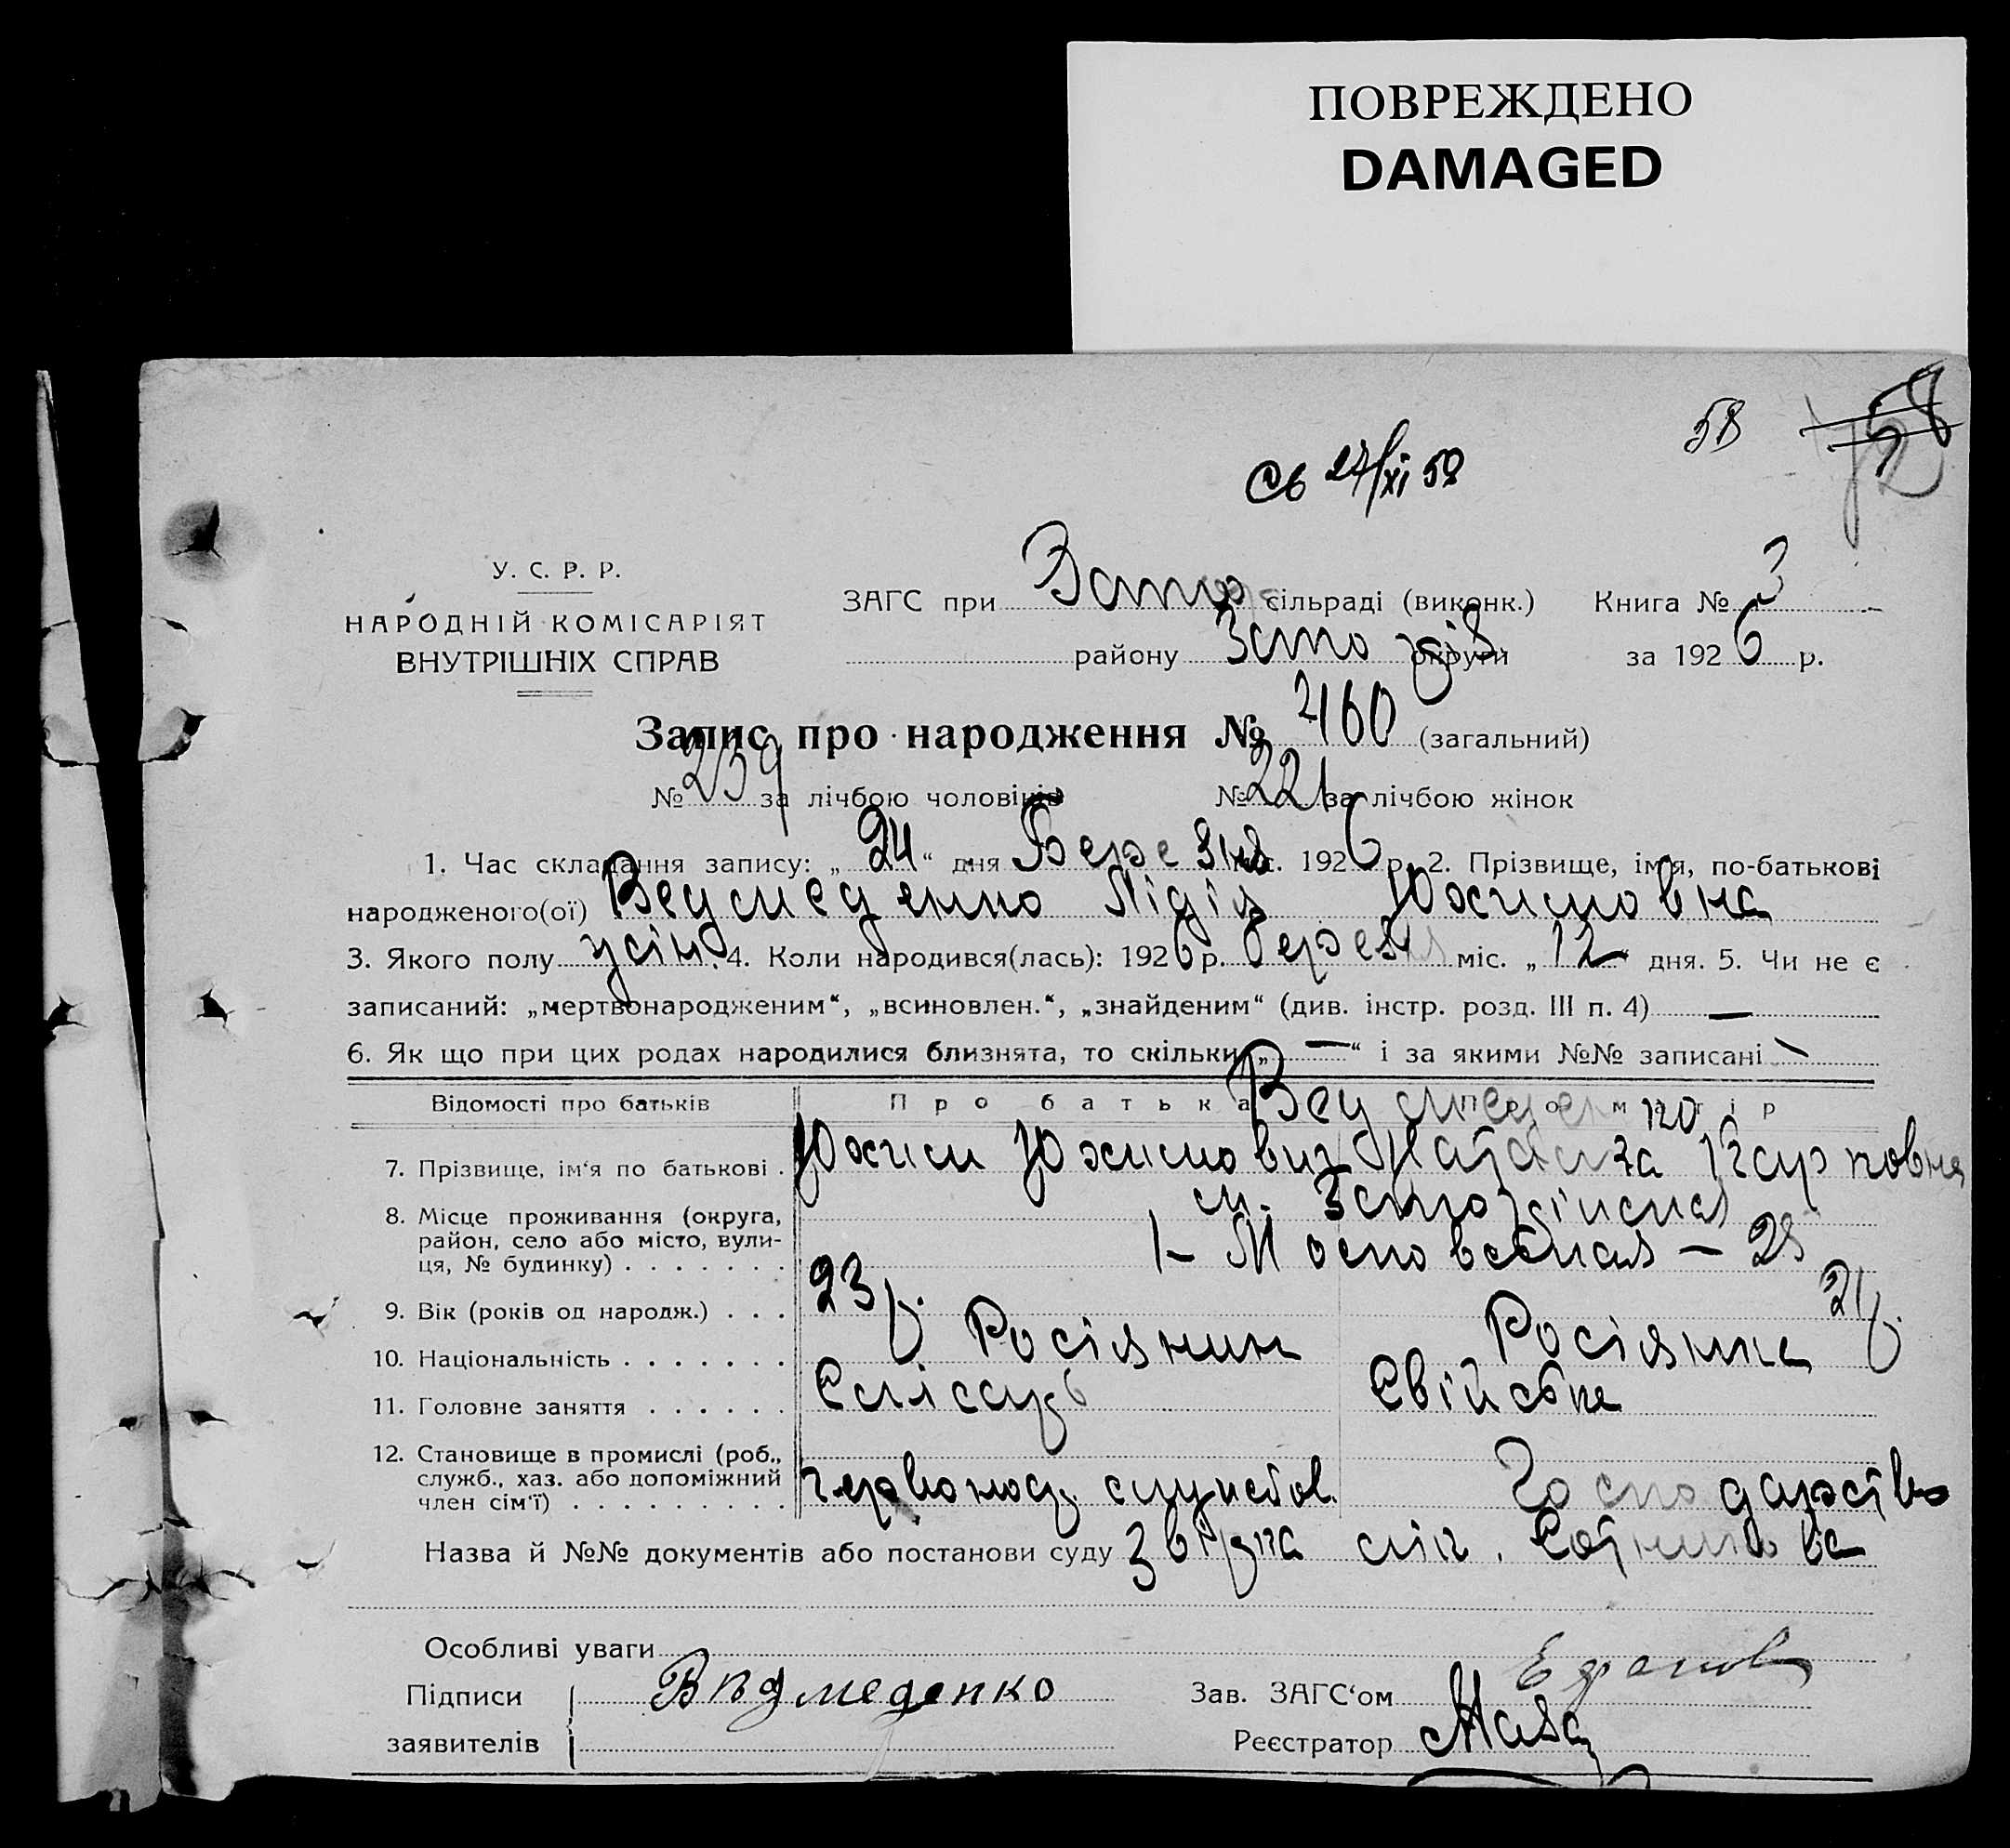 ПОВРЕЖДЕНО
DAMAGED
58 58
Св 27/XI 59
У. С. Р. Р.
НАРОДНІЙ КОМІСАРІЯТ
ВНУТРІШНІХ СПРАВ
ЗАГС при сільраді (виконк.) Книга № 3
району округи за 1926 р.
Запис про народження № 460 (загальний)
№ 239 за лічбою чоловіків № 221 за лічбою жінок
1. Час складання запису: „24“ дня Березня міс. 1926 р. 2. Прізвище, ім'я, по-батькові
народженого(ої) Ведмеденко Лідія Юхимовна
3. Якого полу жін. 4. Коли народився(лась): 1926 р. березня міс. „12“ дня. 5. Чи не є
записаний: „мертвонародженим“, „всиновлен.“, „знайденим“ (див. інстр. розд. III п. 4) —
6. Як що при цих родах народилися близнята, то скільки „—“ і за якими №№ записані —
Відомості про батьків Про батька Про матір
Ведмеденко
7. Прізвище, ім'я по батькові . Юхим Юхимович Наталка Карповна
8. Місце проживання (округа,
район, село або місто, вули-
ця, № будинку) . . . . . . . 1 - Московская - 25
9. Вік (років од народж.) . . . 23 р. 21 р.
10. Національність . . . . . . . Росіянин Росіянка
11. Головне заняття . . . . . . Слісарь Свійське
12. Становище в промислі (роб.,
служб., хаз. або допоміжний
член сім'ї) . . . . . . . . . . господарство
Назва й №№ документів або постанови суду
Особливі уваги
Підписи Видмеденко Зав. ЗАГС'ом
заявителів Реєстратор